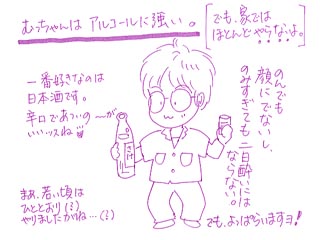 むっちゃんは アルコールに強い。
でも、家では
ほとんどやらないな。
のんでも
顔にでないし、
のみすぎても二日酔いには
ならない。
一番好きなのは
日本酒です。
辛口であついの〜が
いいッスね!!!
さけ
まぁ、若い頃は
ひととおり(ミ)
やりましたがね…(ミ)
でも、よっぱらいますヨ!